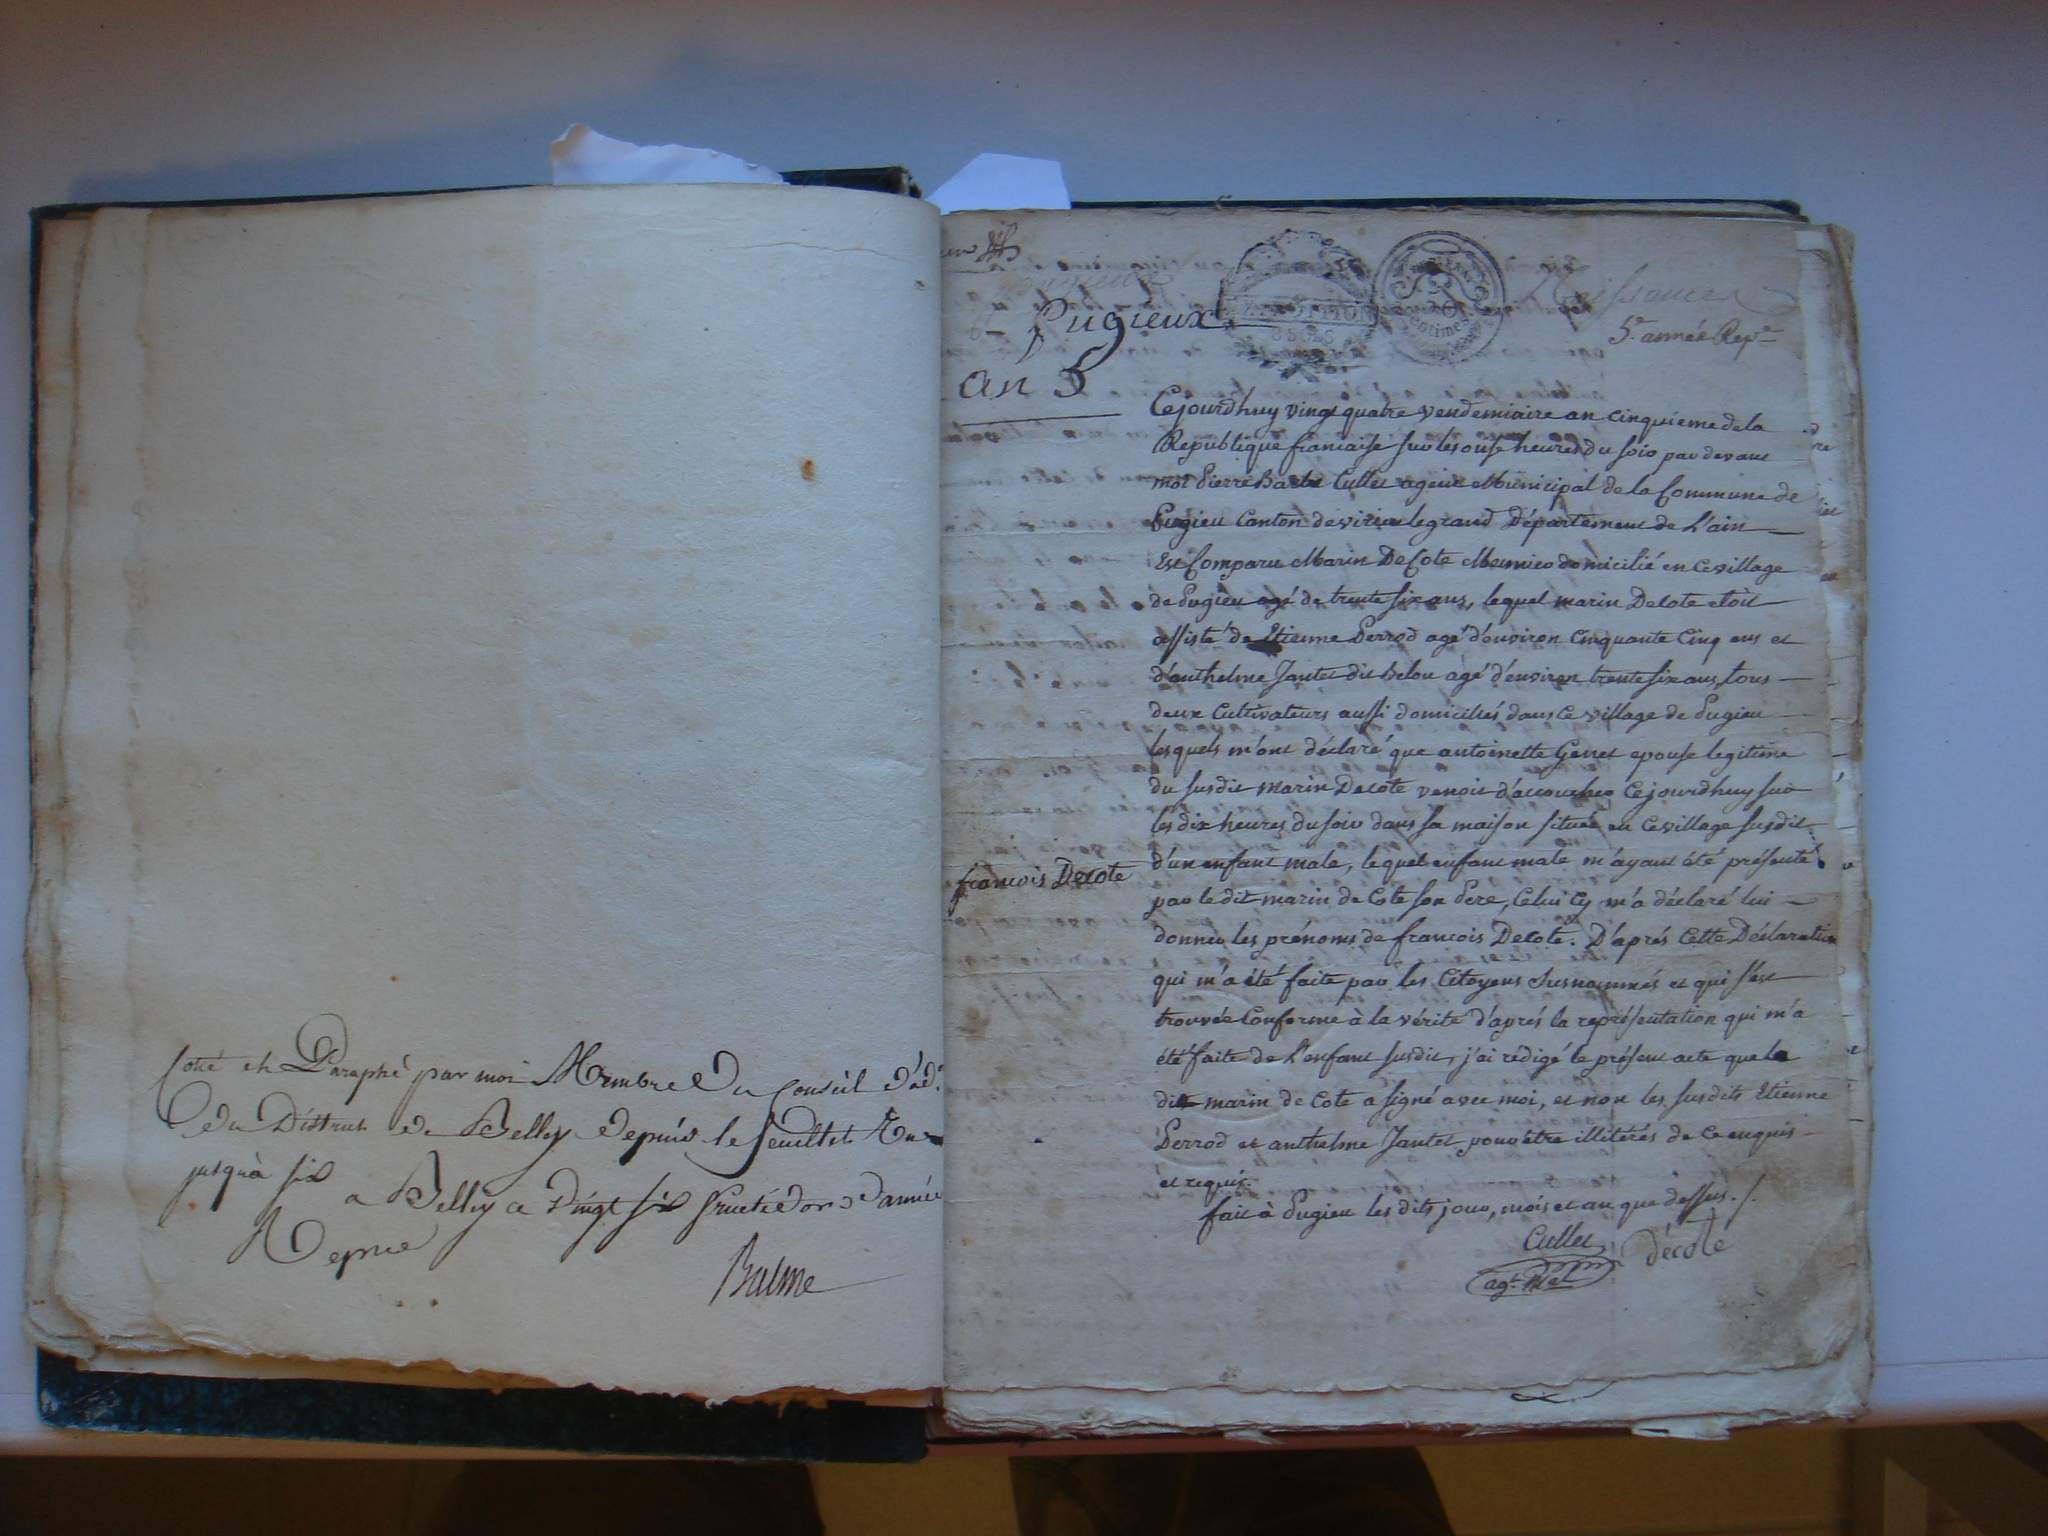 Coté et Paraphé par moi Membre Du Conseil d'ad.
Du District de Belley depuis le feuillet Un
jusqu'à six
a Belley ce vingt six fructidor d'année
Repue
Balme
Pugieux
an 5
Naissances
5e année Repe
EXPEDITION
Centimes
Cejourdhuy vingt quatre vendemiaire an cinquieme de la
Republique francaise sur les onse heures du soir par devant
moi Pierre Cullet agent Municipal de la Commune de
Pugieu Canton de virieu le grand Département de L'ain
Est Comparu Marin De Cote Meunier domicilié en ce village
de Pugieu agé de trente six ans, lequel marin Decote etoit
assisté de Etienne Perrod agé d'environ Cinquante Cinq ans et
d'anthelme Jantet dit Belou agé d'environ trente six ans, tous
deux Cultivateurs aussi domiciliés dans ce village de Pugieu
lesquels m'ont déclaré que antoinette Genet epouse legitime
du susdit marin Decote venoit d'accoucher Cejourdhuy sur
les dix heures du soir dans sa maison située en ce village susdit
d'un enfant male, lequel enfant male m'ayant été présenté
françois Decote
par le dit marin de Cote son Pere, Celui Cy m'a déclaré lui
donner les prénoms de francois Decote. D'aprés Cette Déclaration
qui m'a été faite par les Citoyens Susnommés et qui s'est
trouvée Conforme à la vérite d'aprés la représentation qui m'a
été faite de L'enfant susdit, j'ai rédigé le présent acte que le
dit marin de Cote a signé avec moi, et non les susdits Etienne
Perrod et anthelme Jantet pour être illitérés de ce enquis
et requis.
fait à Pugieu les dits jour, mois et an que dessus.
Cullet décote
agt. Mal